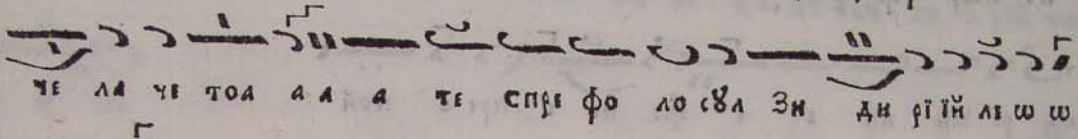 че ла че тоа а а а те спре фо ло сꙋл Зи ди рїй їй ле ѡ ѡ